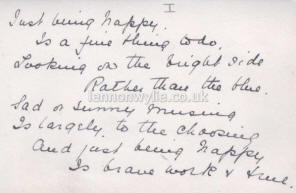 I
Just being happy,
Is a fine thing to do,
Looking on the bright side
Rather than the blue.
lennonwylie.co.uk
Sad or sunny musing
Is largely to the choosing
And just being happy
Is brave work & true.